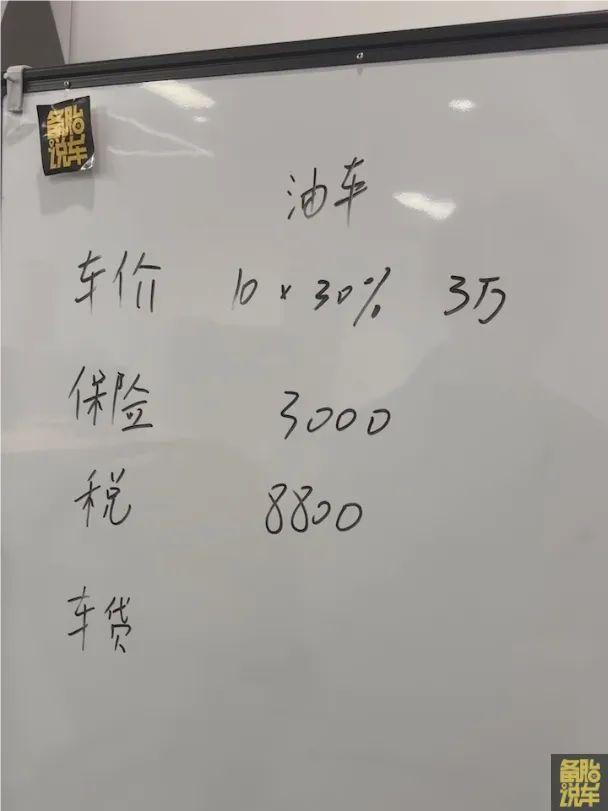 备胎
说车
油车
车价 10 x 30% 3万
保险 3000
税 8800
车贷
备胎
说车